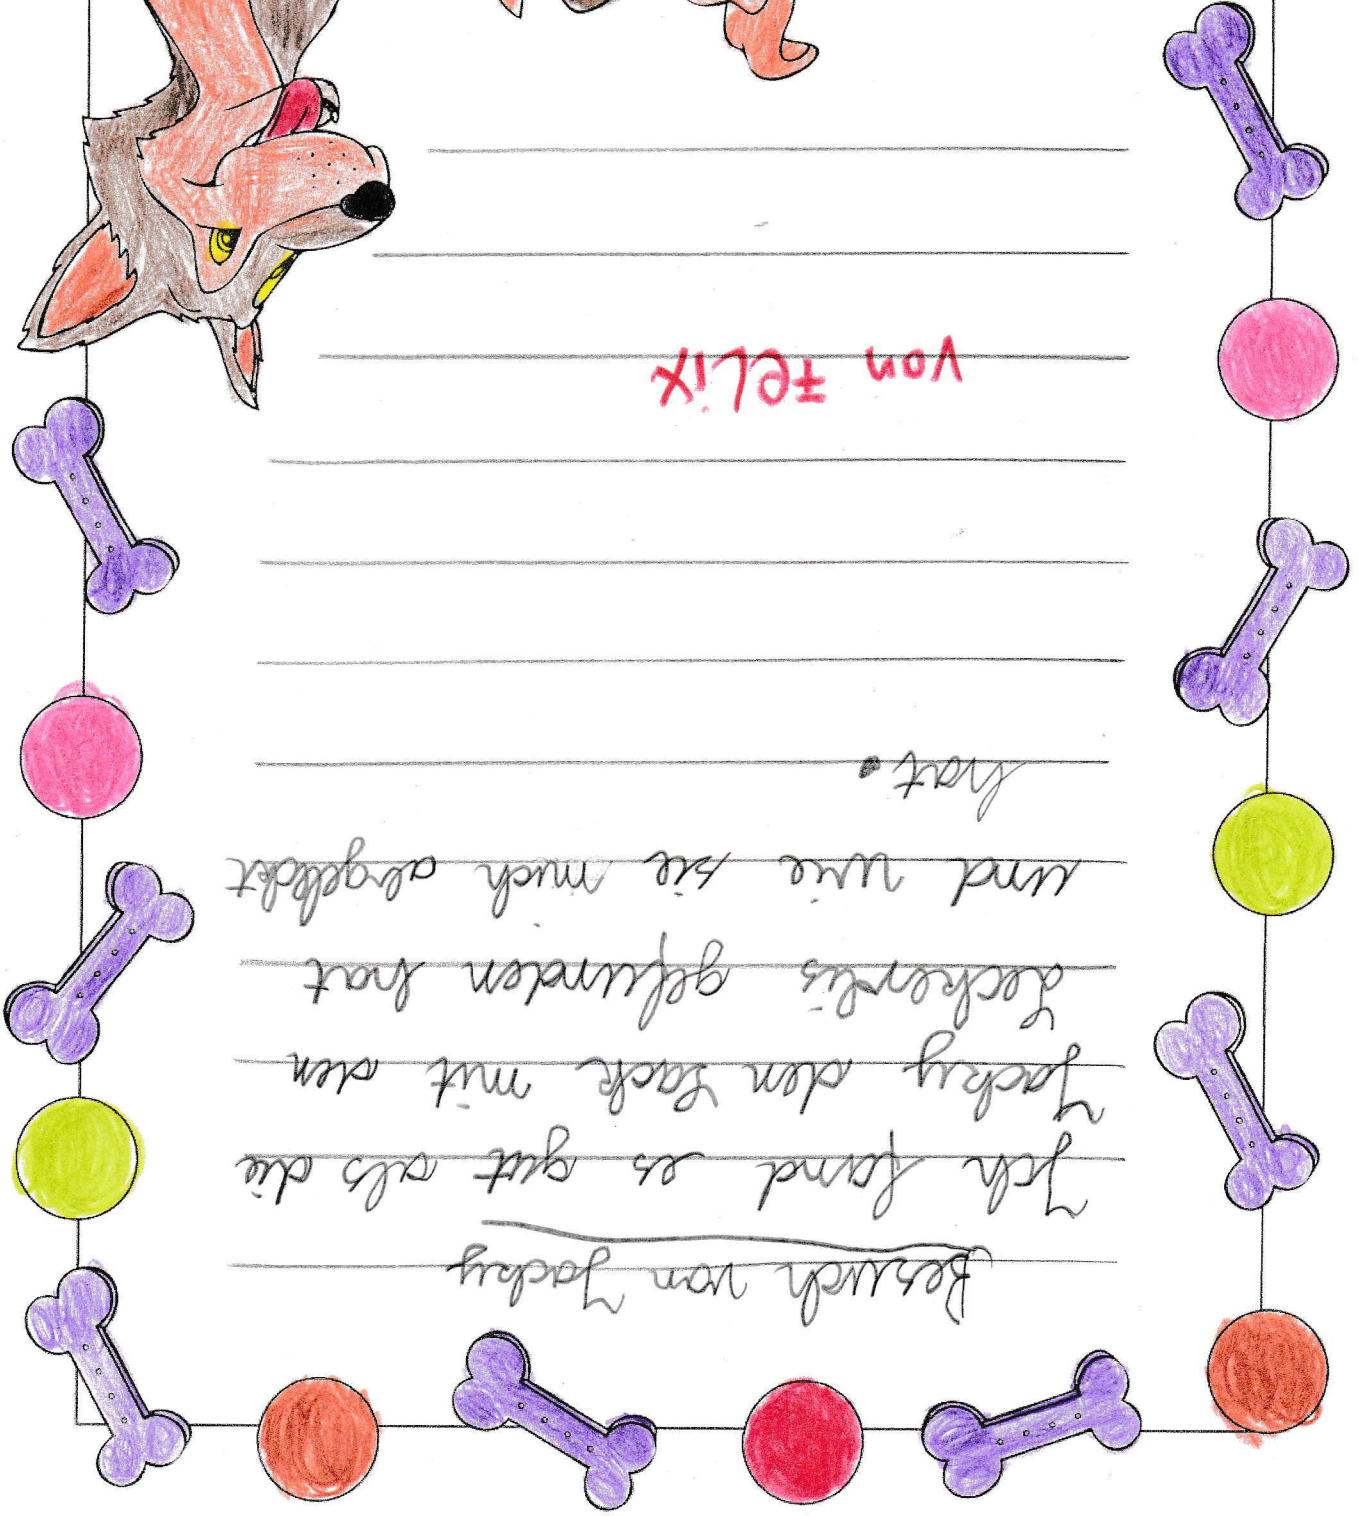 Besuch von Jacky
Ich fand es gut als die
Jacky den Sack mit den
Leckerlis gefunden hat
und wie sie mich abgeleckt
hat.
von FeLix